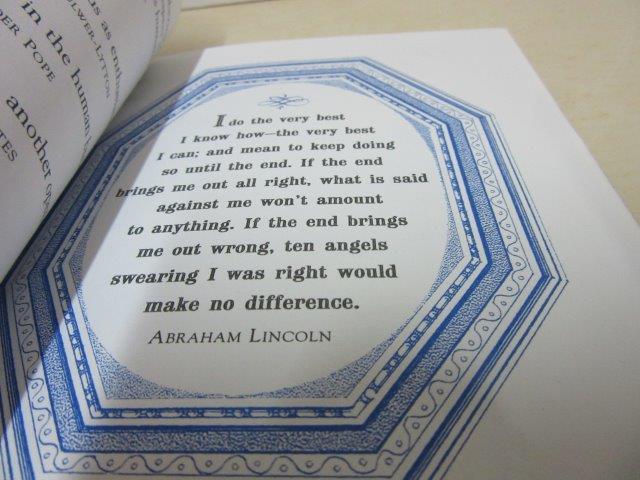 us as
DER POPE
in the human
BULWER-LYTTON
another
I do the very best
I know how—the very best
I can; and mean to keep doing
so until the end. If the end
brings me out all right, what is said
against me won't amount
to anything. If the end brings
me out wrong, ten angels
swearing I was right would
make no difference.
ABRAHAM LINCOLN